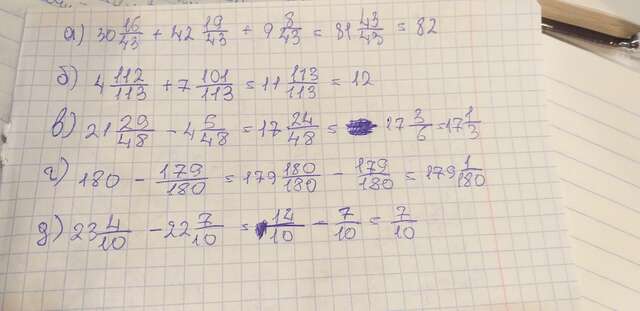 а) 30 16/43 + 42 19/43 + 9 8/43 = 81 43/43 = 82
б) 4 112/113 + 7 101/113 = 11 113/113 = 12
в) 21 29/48 - 4 5/48 = 17 24/48 = 17 2/6 = 17 1/3
г) 180 - 179/180 = 179 180/180 - 179/180 = 179 1/180
д) 23 4/10 - 22 7/10 = 14/10 - 7/10 = 7/10